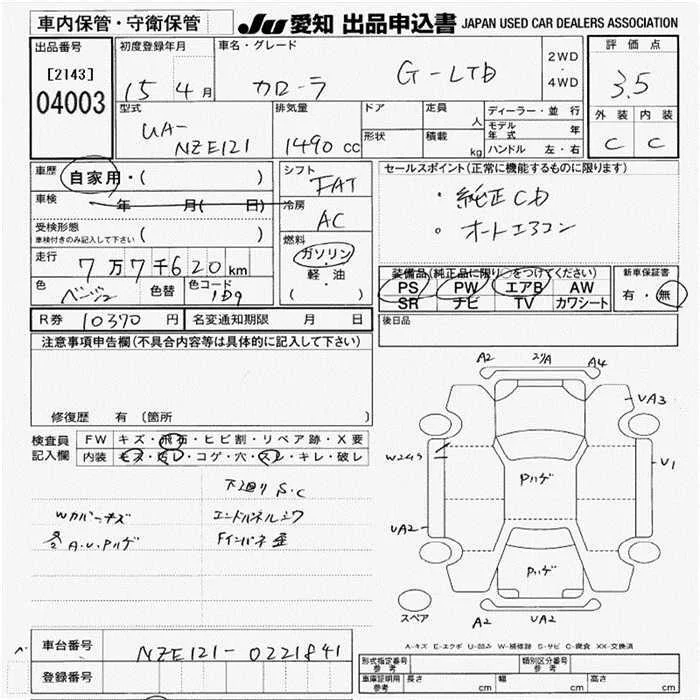 車内保管・守衛保管
JU 愛知 出品申込書 JAPAN USED CAR DEALERS ASSOCIATION
出品番号 初度登録年月 車名・グレード 評価点
[2143]
04003
15 年 4 月 カローラ G-LTD 2WD・4WD 3.5
型式 排気量 ドア 定員 人 ディーラー・並行 外装 内装
UA-NZE121 1490 cc 形状 積載 kg モデル年式 年 C C
ハンドル 左・右
車歴 自家用・( ) シフト FAT セールスポイント(正常に機能するものに限ります)
車検 年 月( 日) 冷房 AC ・純正CD
受検形態 車検付きのみ記入して下さい ( ) ・オートエアコン
走行 7万7千620km 燃料 ガソリン・軽油 ( )
色 ベージュ 色替 色コード 1D9
装備品(純正品に限り○をつけてください) 新車保証書
PS PW エアB AW 有・無
SR ナビ TV カワシート
R券 10370 円 名変通知期限 月 日 後日品
注意事項申告欄(不具合内容等は具体的に記入して下さい)
修復歴 有 〔箇所
検査員記入欄 FW キズ・飛石・ヒビ割・リペア跡・X要
内装 キズ・汚レ・コゲ・穴・スレ・キレ・破レ
下廻りS.C
Wカバーキズ
A.U.Pハゲ
A2 A4
UA3
U1
UA2
Pハゲ
Pハゲ
A2 UA2
スペア
A-キズ E-エクボ U-凹み W-補修跡 S-サビ C-腐食 XX-交換済
車台番号 NZE121-0221841
登録番号
型式指定番号 参考 類別区分番号 参考
車庫証明用 参考 長さ cm 幅 cm 高さ cm